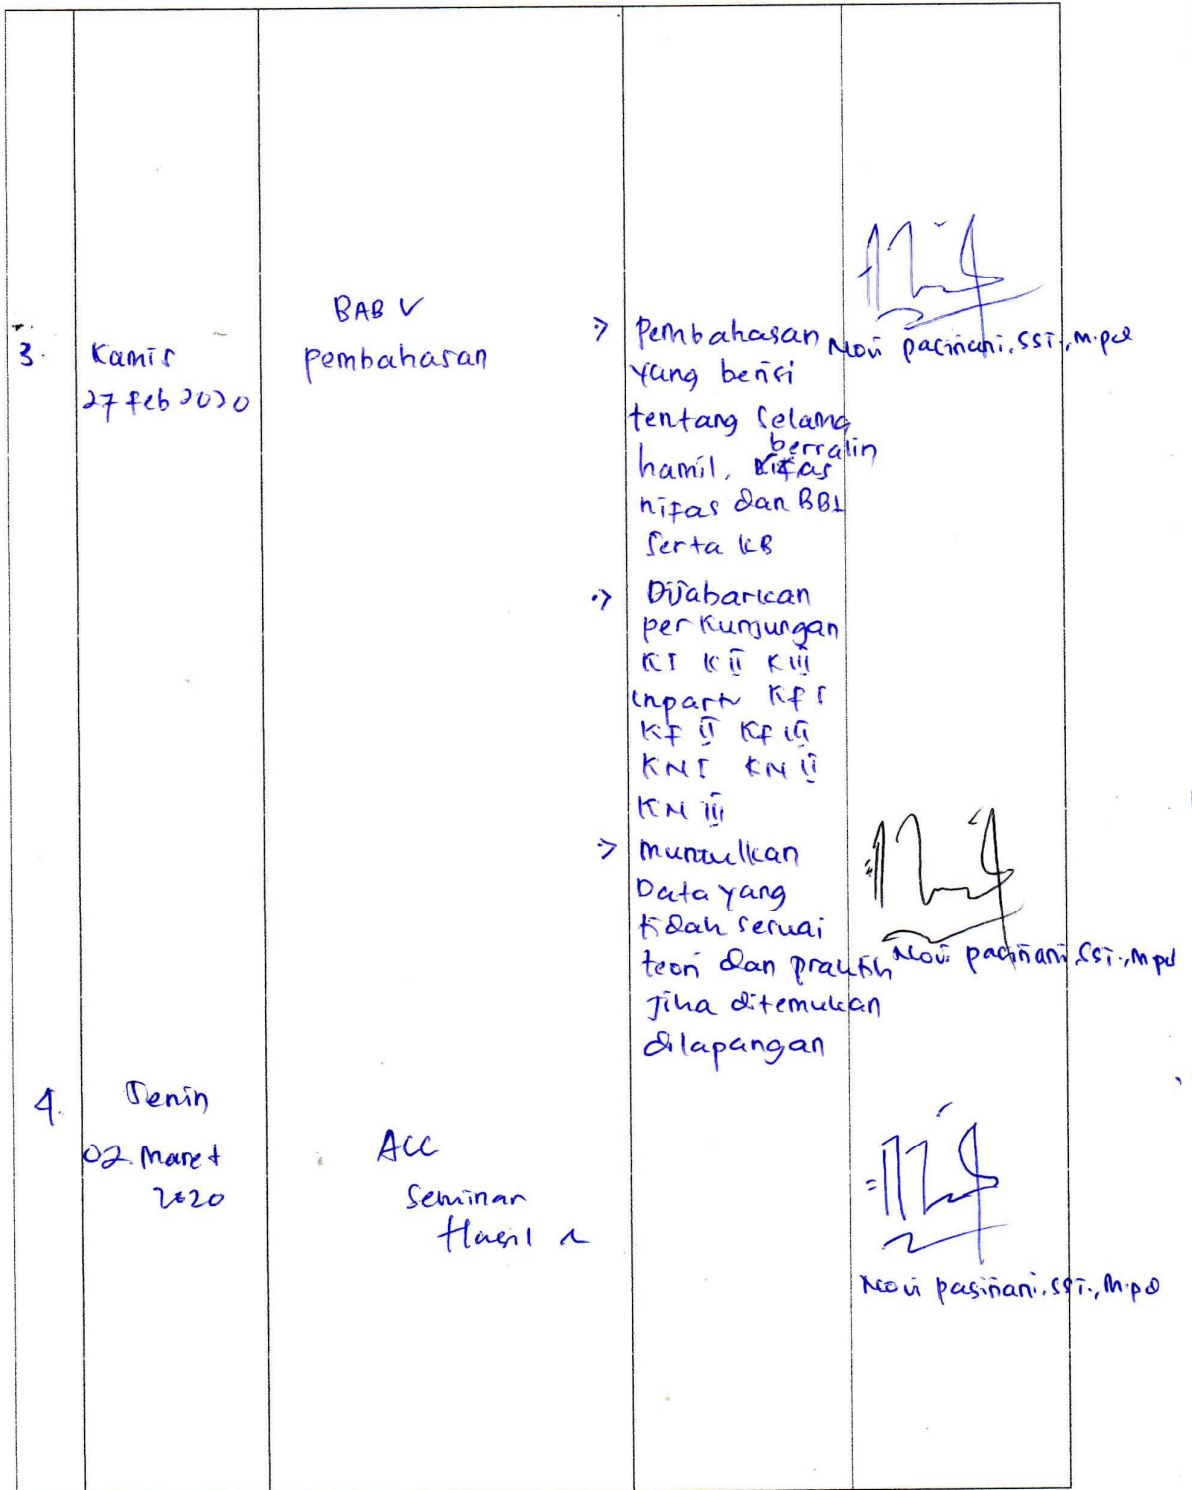 3.
Kamis
27 Feb 2020
BAB V
pembahasan
Pembahasan
yang berisi
tentang selama
hamil, bersalin
nifas dan BBL
serta KB
Dijabarkan
per kunjungan
K I K II K III
inpartu KF I
KF II KF III
KN I KN II
KN III
munculkan
Data yang
tidak sesuai
teori dan praktik
Jika ditemukan
dilapangan
Novi pasiriani, SSi., M.pd
Novi pasiriani, SSi., Mpd
4.
Senin
02 Maret
2020
ACC
Seminar
Hasil
Novi pasiriani, SSi., M.pd